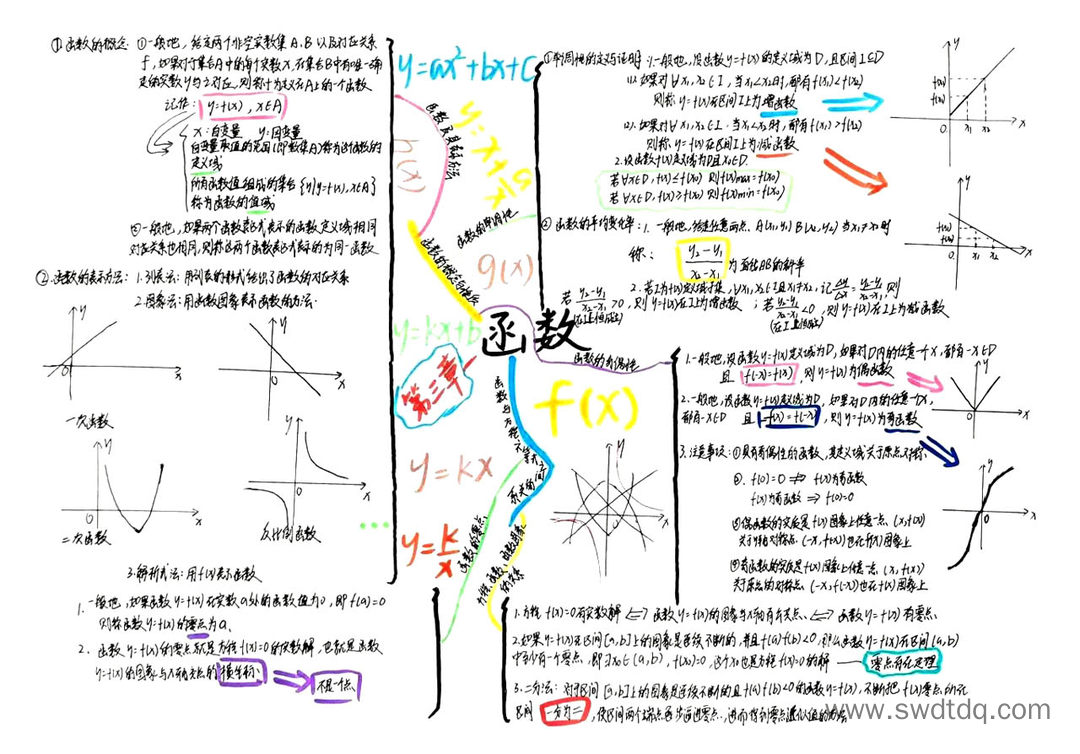 ①函数的概念 ①一般地，给定两个非空实数集A、B以及对应关系
f，如果对于集合A中的每个实数x，在集合B中有唯一确
定的实数y与之对应，则称f为定义在A上的一个函数
记作：y=f(x)，x∈A
x：自变量 y：因变量
自变量取值的范围(即数集A)称为这个函数的
定义域
所有函数值组成的集合{y|y=f(x),x∈A}
称为函数的值域
②一般地，如果两个函数表达式表示的函数定义域相同
对应关系也相同，则称这两个函数表达式表示的为同一函数
②函数的表示方法：1.列表法：用列表的形式给出了函数的对应关系
2.图象法：用函数图象表示函数的方法.
y
x
0
y
x
0
一次函数
y
x
0
二次函数
y
x
0
反比例函数
3.解析式法：用f(x)表示函数
1.一般地，如果函数y=f(x)在实数a处的函数值为0，即f(a)=0
则称函数y=f(x)的零点为a.
2.函数y=f(x)的零点就是方程f(x)=0的实数解，也就是函数
y=f(x)的图象与x轴交点的横坐标
不是一个点
y=ax²+bx+c
函数及其表示方法
h(x)
y=x+a/x
函数的单调性
函数的概念与性质
g(x)
y=kx+b
函数
第三章
函数的奇偶性
f(x)
y=kx
y=k/x
函数的零点
①单调性的定义与证明：1.一般地，设函数y=f(x)的定义域为D，且区间I⊆D
(1).如果对∀x₁,x₂∈I，当x₁<x₂时，都有f(x₁)<f(x₂)
则称y=f(x)在区间I上为增函数
(2).如果对∀x₁,x₂∈I.当x₁<x₂时，都有f(x₁)>f(x₂)
则称y=f(x)在区间I上为减函数
2.设函数f(x)定义域为D且x₀∈D.
若∀x∈D,f(x)≤f(x₀) 则f(x)max=f(x₀)
若∀x∈D,f(x)≥f(x₀) 则f(x)min=f(x₀)
②函数的平均变化率：1.一般地，给定任意两点，A(x₁,y₁) B(x₂,y₂) 当x₁≠x₂时
称：y₂-y₁/x₂-x₁ 为直线AB的斜率
2.若I为f(x)定义域子集，∀x₁,x₂∈I且x₁≠x₂，记Δy/Δx=y₂-y₁/x₂-x₁ 则
若y₂-y₁/x₂-x₁>0，则y=f(x)在I上为增函数；若y₂-y₁/x₂-x₁<0，则y=f(x)在I上为减函数
(在I上恒成立) (在I上恒成立)
1.一般地，设函数y=f(x)定义域为D，如果对D内的任意一个x，都有-x∈D
且f(-x)=f(x)，则y=f(x)为偶函数
2.一般地，设函数y=f(x)定义域为D，如果对D内的任意一个x，
都有-x∈D 且-f(x)=f(-x)，则y=f(x)为奇函数
3.注意事项：①具有奇偶性的函数，其定义域关于原点对称.
②.f(0)=0 ⇏ f(x)为奇函数
f(x)为奇函数 ⇒ f(0)=0
③偶函数的实质是f(x)图象上任意一点，(x,f(x))
关于y轴对称点，(-x,f(x))也在f(x)图象上
④奇函数的实质是f(x)图象上任意一点，(x,f(x))
关于原点的对称点，(-x,f(-x))也在f(x)图象上
1.方程f(x)=0有实数解⇔函数y=f(x)的图象与x轴有交点⇔函数y=f(x)有零点.
2.如果y=f(x)在区间[a,b]上的图象是连续不断的，并且f(a)f(b)<0，那么函数y=f(x)在区间(a,b)
中至少有一个零点，即∃x₀∈(a,b)，f(x₀)=0，这个x₀也是方程f(x)=0的解 零点存在定理
3.二分法：对于区间[a,b]上的图象是连续不断的且f(a)f(b)<0的函数y=f(x)，不断把f(x)零点所在
区间一分为二，使区间两个端点逐步逼近零点，进而得到零点近似值的方法
www.swdtdq.com